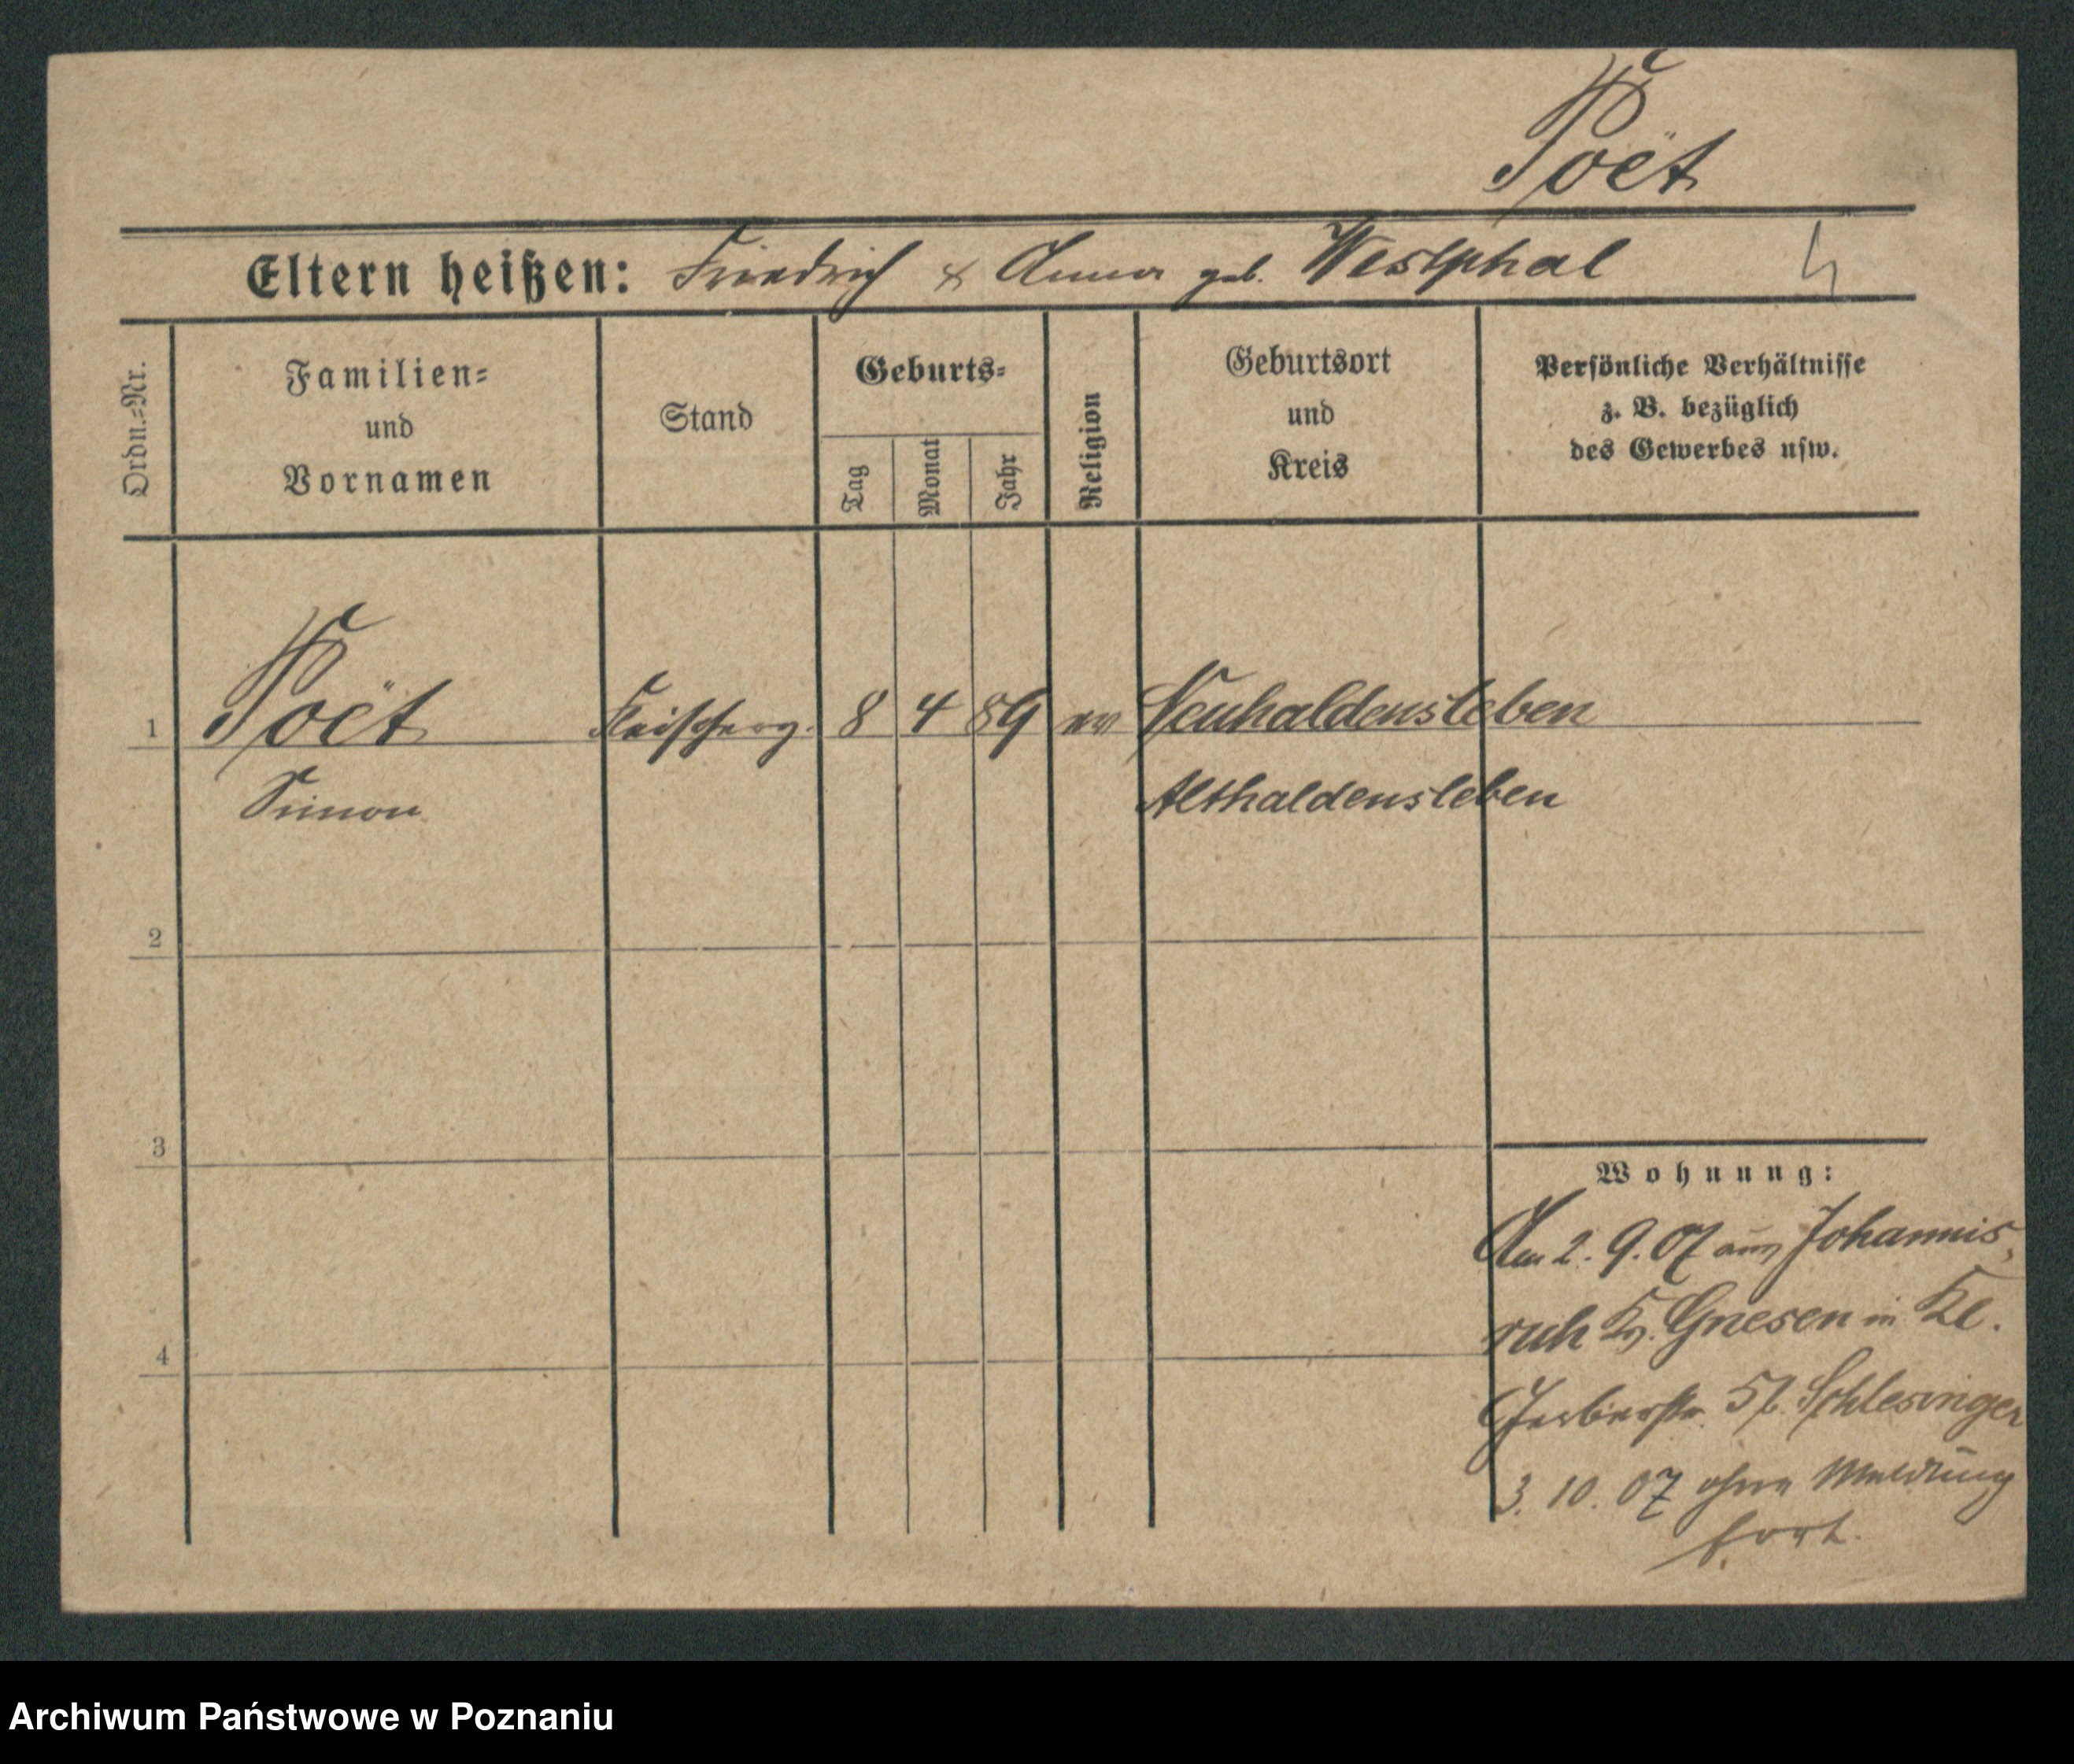 Poët
Eltern heißen: Friedrich & Anna geb. Westphal
Ordn.=Nr.
Familien=
und
Vornamen
Stand
Geburts=
Tag
Monat
Jahr
Religion
Geburtsort
und
Kreis
Persönliche Verhältnisse
z. B. bezüglich
des Gewerbes usw.
1 Poët Fleischerg. 8 4 89 ev Neuhaldensleben
Simon Althaldensleben
2
3
Wohnung:
Am 2. 9. 07 aus Johannis,
ruh Kr. Gnesen in Kl.
4
Gerberstr. Schlesinger
3. 10. 07 ohne Meldung
fort.
Archiwum Państwowe w Poznaniu